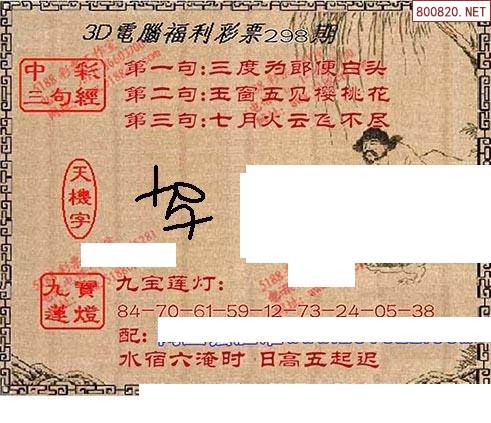 800820.NET
3D電腦福利彩票298期
中彩
三句經
第一句:三度为郎便白头
第二句:玉窗五见樱桃花
第三句:七月火云飞不尽
天機字
九寶
蓮燈
九宝莲灯:
84-70-61-59-12-73-24-05-38
配:
水宿六淹时 日高五起迟